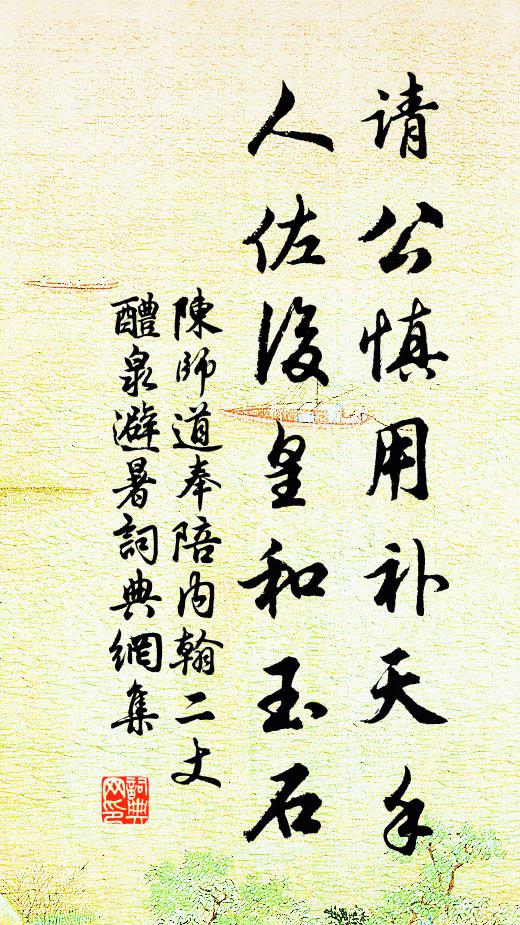 请公慎用补天手
人佐後皇和玉石
陳師道奉陪内翰二丈
醴泉避暑詞典網集
詞典
网印